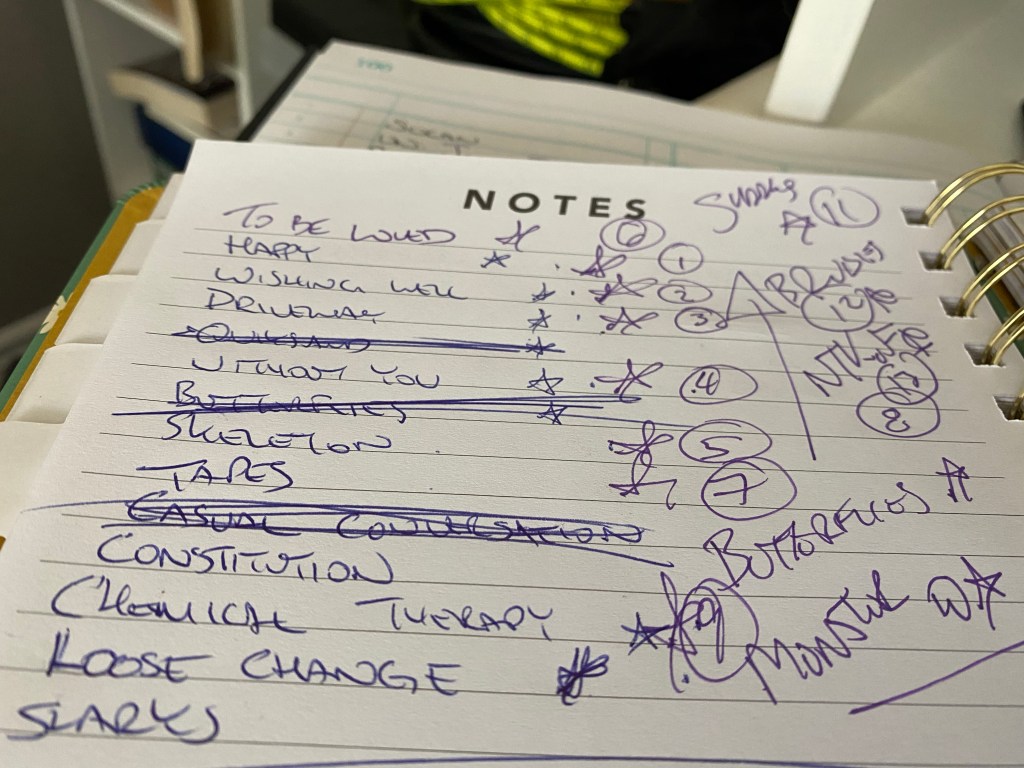 NOTES
TO BE LOVED 6
HAPPY 1
WISHING WELL 2
DRIVEWAY 3
QUICKSAND
WITHOUT YOU 4
BUTTERFLIES
SKELETON 5
TAPES 7
CASUAL CONVERSATION
CONSTITUTION
CHEMICAL THERAPY 9
LOOSE CHANGE
SCARYS
11
12
8
BUTTERFLIES